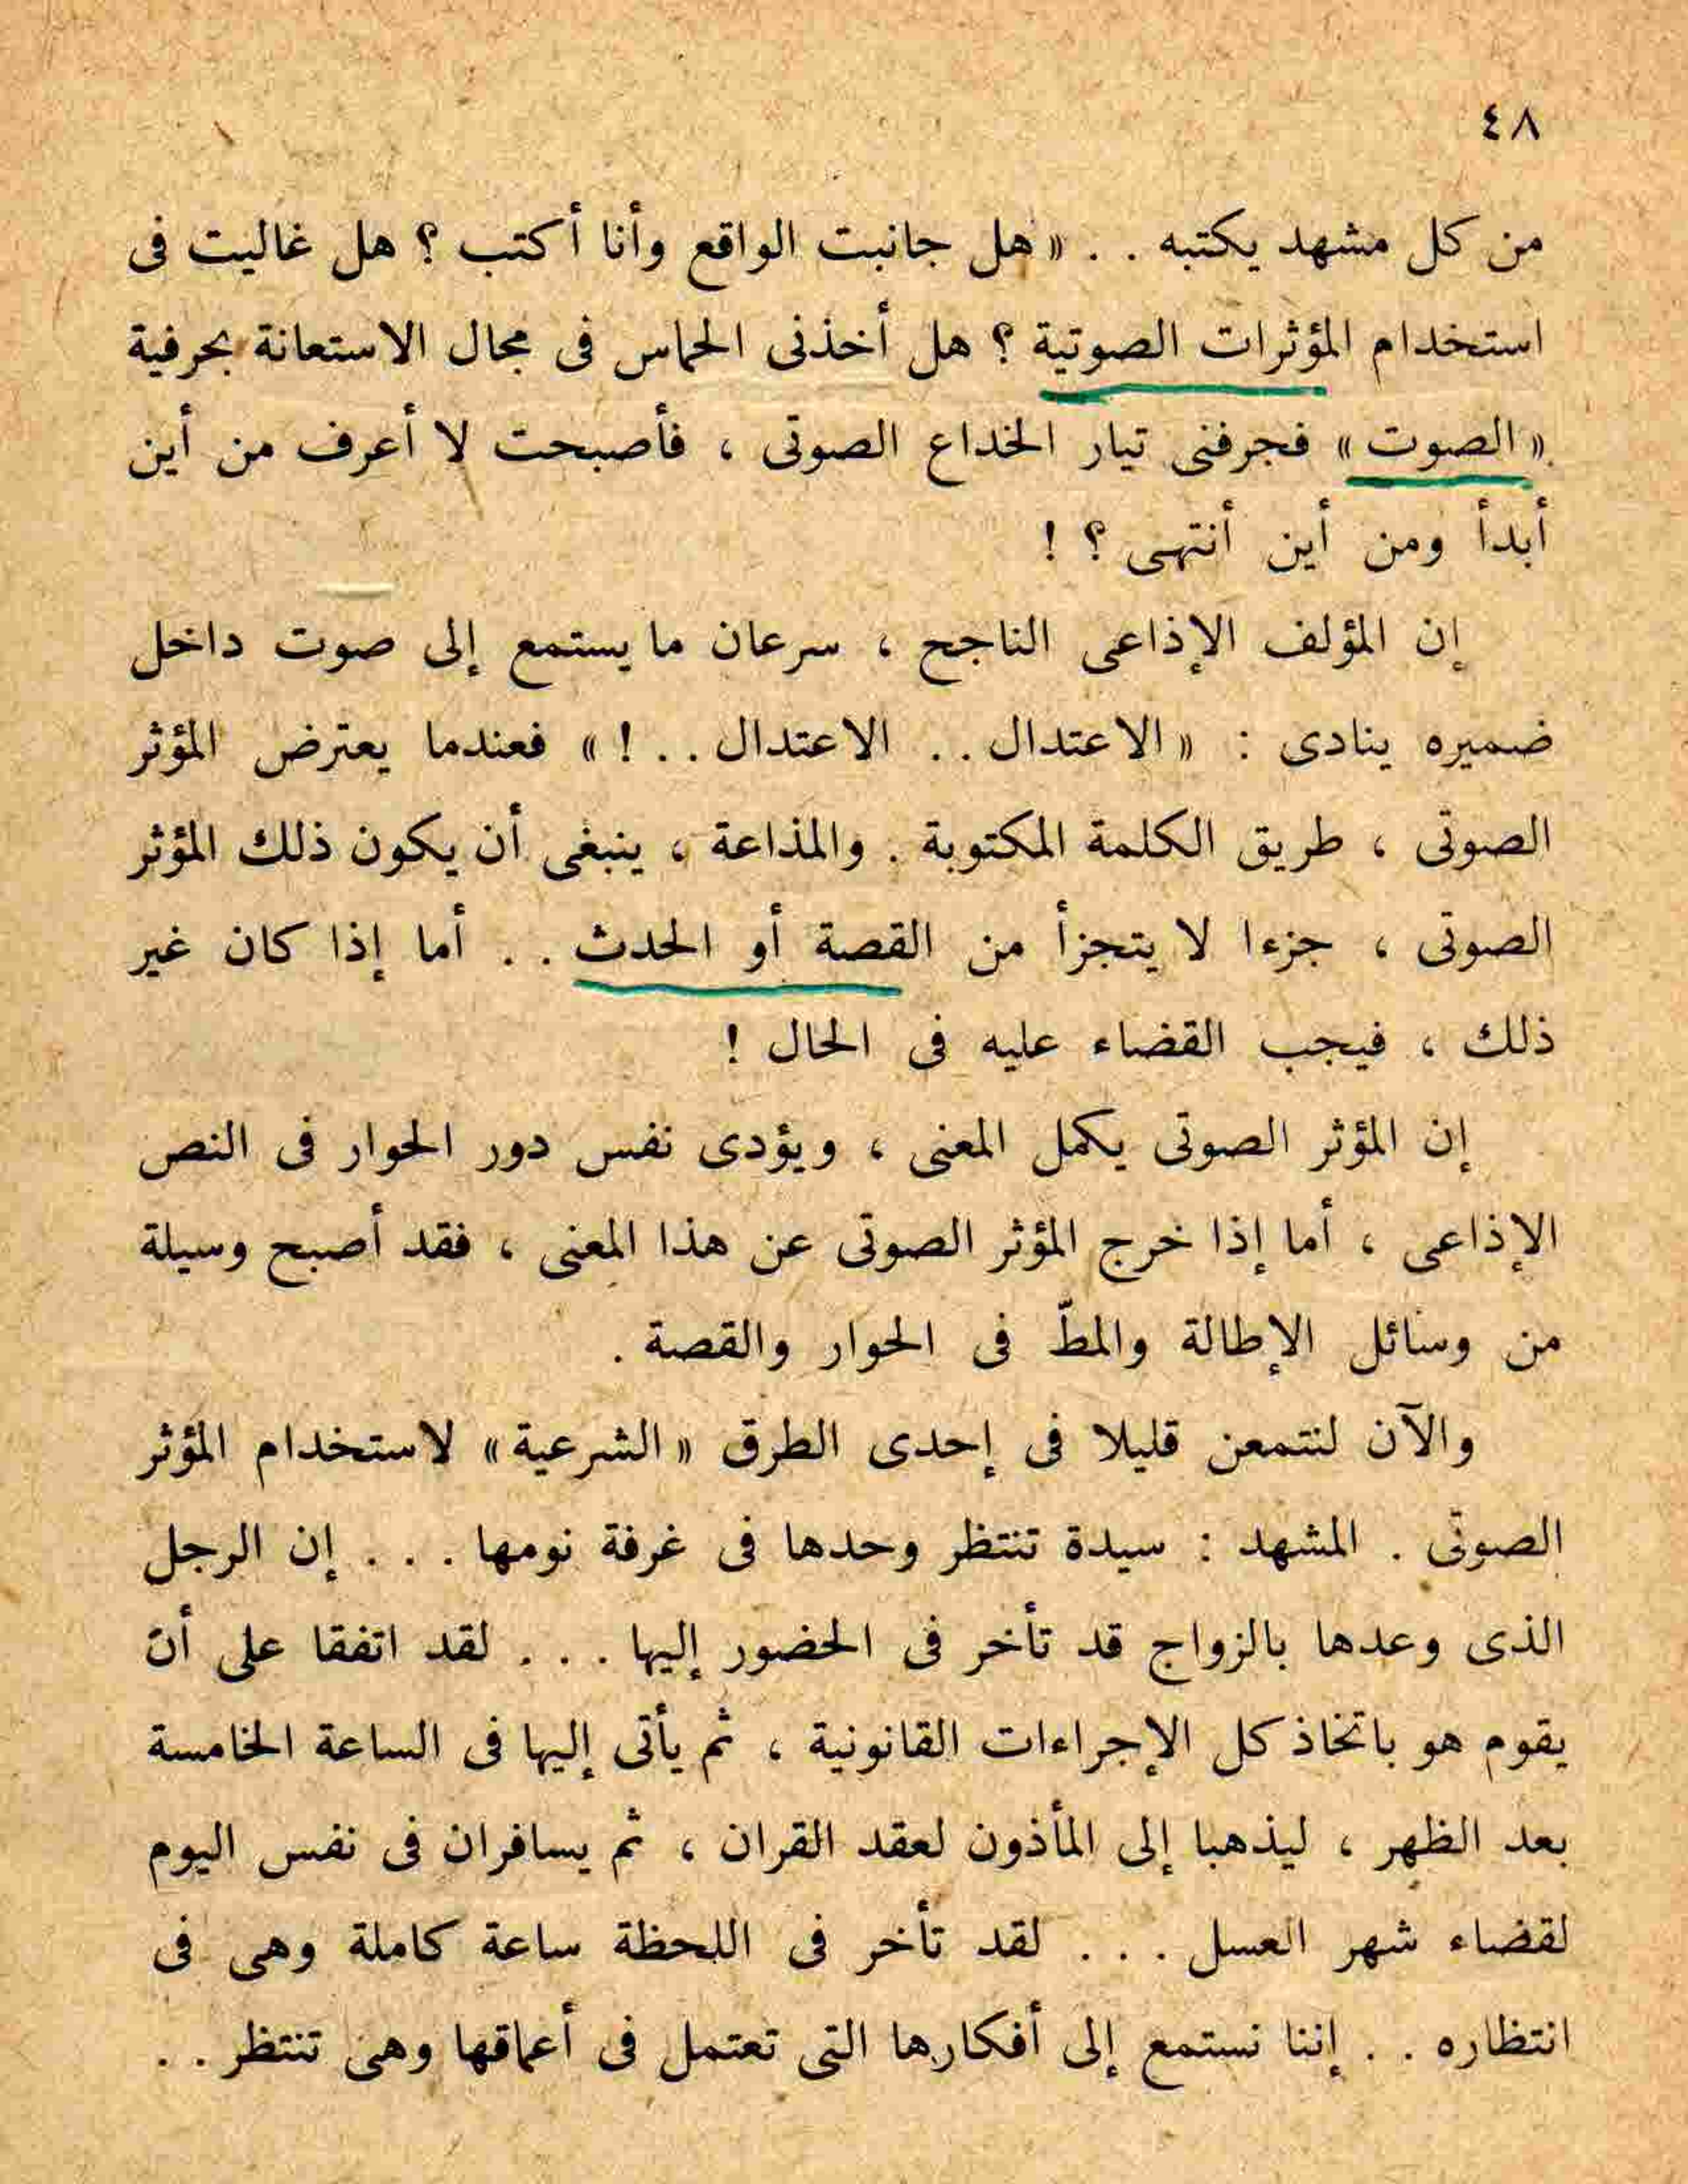 ٤٨
من كل مشهد يكتبه . . « هل جانبت الواقع وأنا أكتب ؟ هل غاليت فى
استخدام المؤثرات الصوتية ؟ هل أخذنى الحماس فى مجال الاستعانة بحرفية
« الصوت » فجرفنى تيار الخداع الصوتى ، فأصبحت لا أعرف من أين
أبدأ ومن أين أنتهى ؟ !
إن المؤلف الإذاعى الناجح ، سرعان ما يستمع إلى صوت داخل
ضميره ينادى : « الاعتدال . . الاعتدال . . ! » فعندما يعترض المؤثر
الصوتى ، طريق الكلمة المكتوبة . والمذاعة ، ينبغى أن يكون ذلك المؤثر
الصوتى ، جزءا لا يتجزأ من القصة أو الحدث . . أما إذا كان غير
ذلك ، فيجب القضاء عليه فى الحال !
إن المؤثر الصوتى يكمل المعنى ، ويؤدى نفس دور الحوار فى النص
الإذاعى ، أما إذا خرج المؤثر الصوتى عن هذا المعنى ، فقد أصبح وسيلة
من وسائل الإطالة والمطّ فى الحوار والقصة .
والآن لنتمعن قليلا فى إحدى الطرق « الشرعية » لاستخدام المؤثر
الصوتى . المشهد : سيدة تنتظر وحدها فى غرفة نومها . . . إن الرجل
الذى وعدها بالزواج قد تأخر فى الحضور إليها . . . لقد اتفقا على أن
يقوم هو باتخاذ كل الإجراءات القانونية ، ثم يأتى إليها فى الساعة الخامسة
بعد الظهر ، ليذهبا إلى المأذون لعقد القران ، ثم يسافران فى نفس اليوم
لقضاء شهر العسل . . . لقد تأخر فى اللحظة ساعة كاملة وهى فى
انتظاره . . إننا نستمع إلى أفكارها التى تعتمل فى أعماقها وهى تنتظر . .